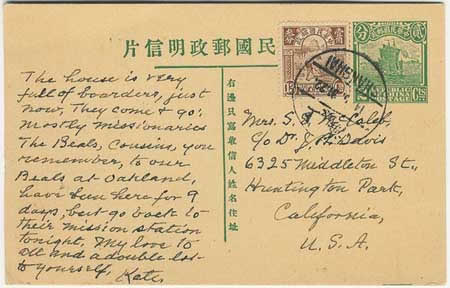 中華民國郵政明信片
右邊只寫收信人姓名住址
The house is very
full of boarders, just
now, They come & go;
mostly missionaries
The Beals, Cousins, you
remember, to our
Beals at Oakland,
have been here for 9
days, but go back to
their mission station
tonight, My love to
all and a double
to yourself, Kate.
SHANGHAI
Cts
Mrs. S.
C/o Dr. J. Davis
6325 Middleton St.,
Huntington Park,
California,
U.S.A.